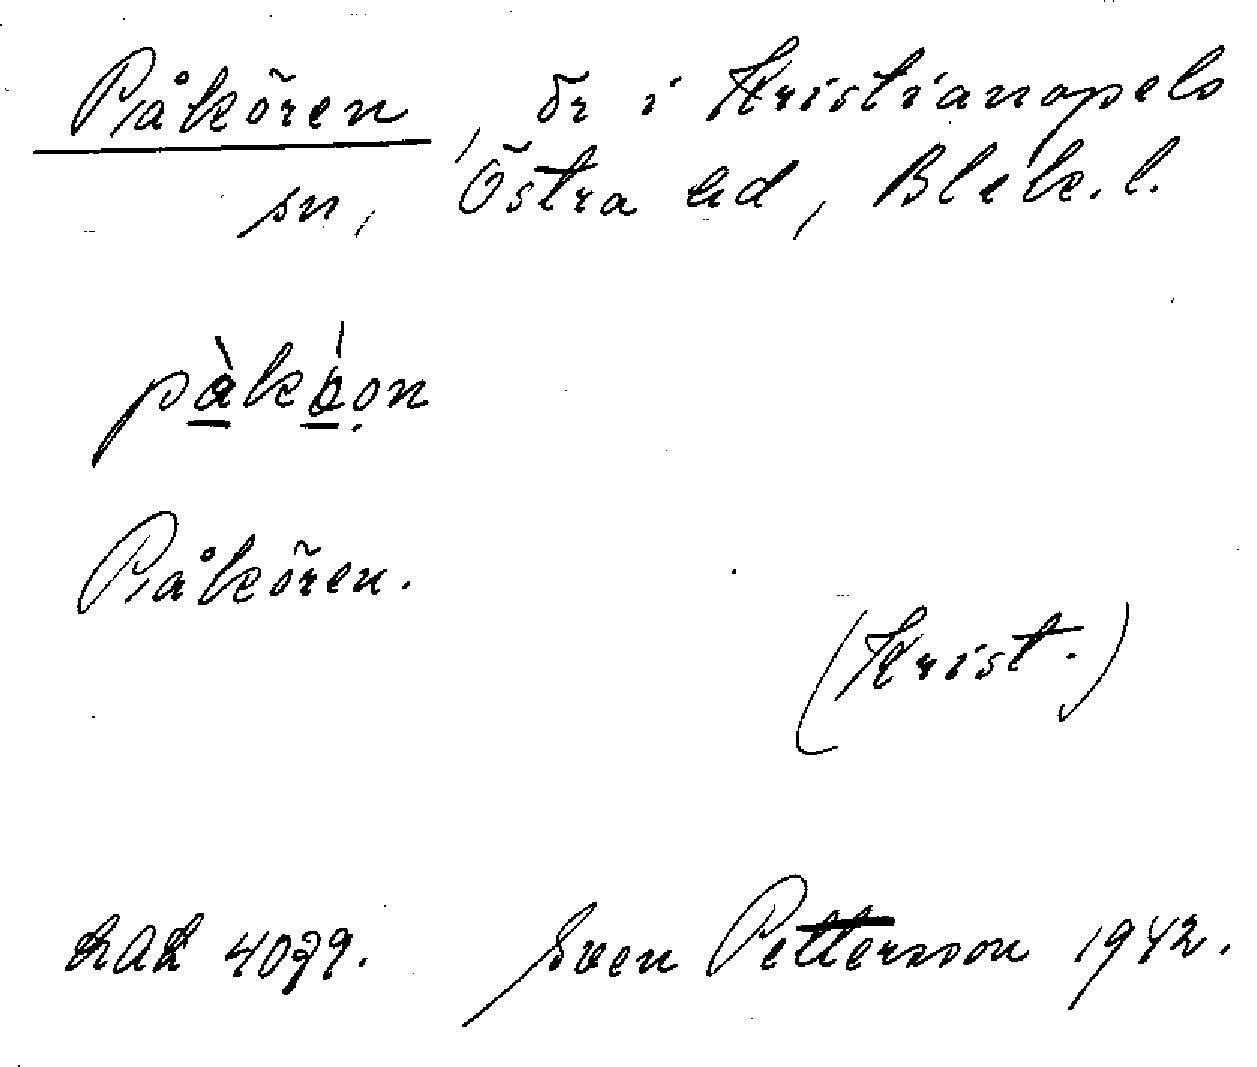 Påkören, ör i Kristianopels
sn, Östra hd, Blek. l.
Påkören.
(Krist.)
LAL 4079. Sven Pettersson 1942.